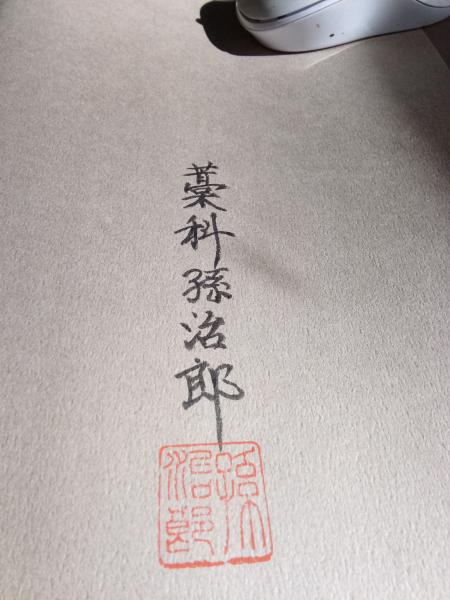 藁科孫治郎
孫治郎